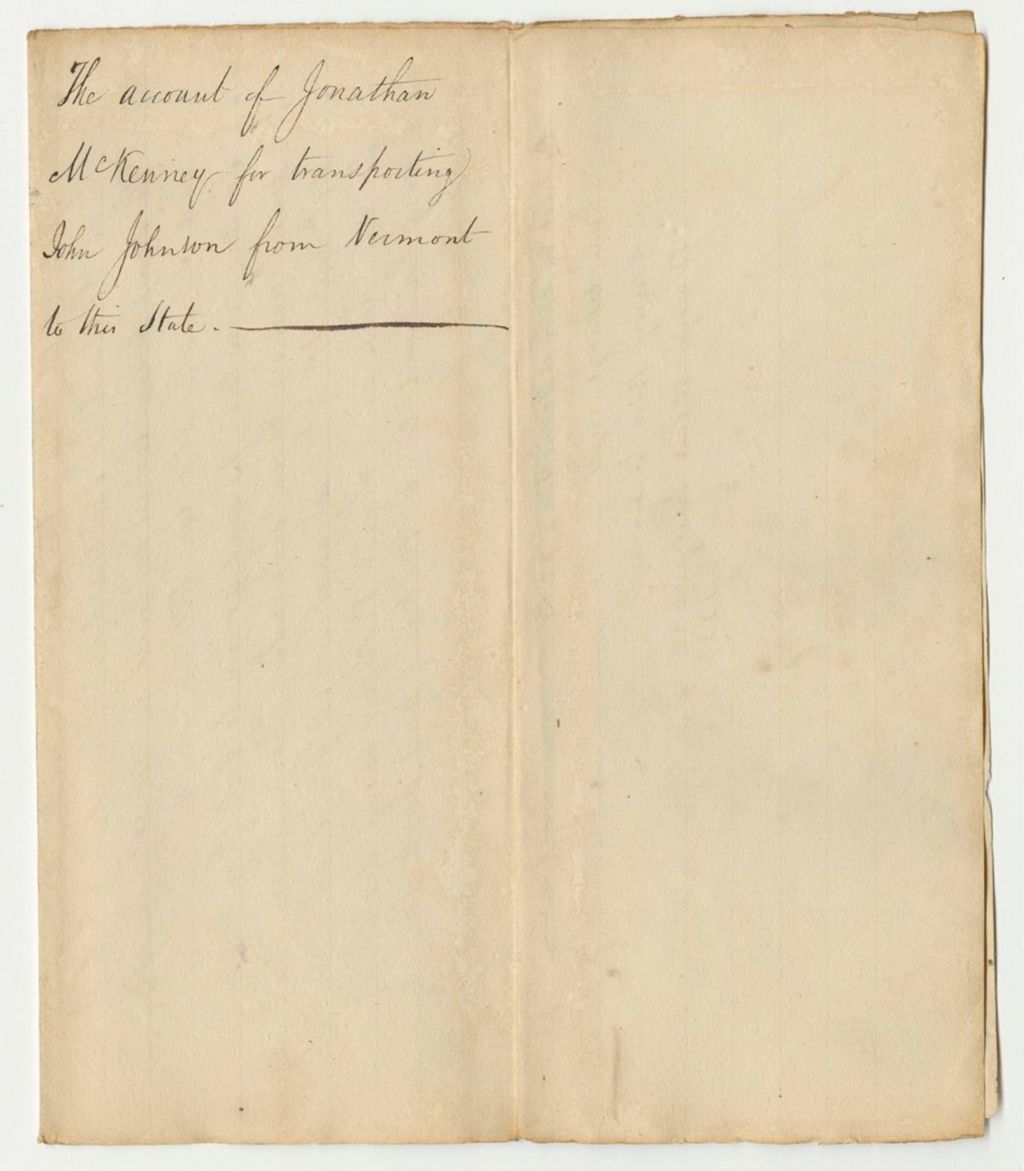 The account of Jonathan
McKenney for transporting
John Johnson from Vermont
to this State.